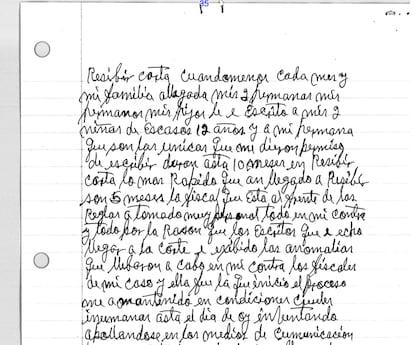 35
Resibir carta cuandomenos cada mes y
mi familia allegada mis 2 hermanas mis
hermanos mis hijos le e Escrito a mis 2
niñas de Escasos 12 años y a mi hermana
que son las unicas que mi dieron permiso
de escribir duran asta 10 meses en Resibir
carta lo mas Rapido que an llegado a Resibir
son 5 meses la fiscal que Esta al frente de las
Reglas a tomado muy personal todo en mi contra
y todo por la Rason que los Escritos que e echo
llegar a la corte e exibido las anomalias
que llebaron a cabo en mi contra los fiscales
de mi caso y ella fue la que inicio el proceso
me a mantenido en condiciones
inumanas asta el dia de oy inbentando
apollandose en los medios de Cumunicacion